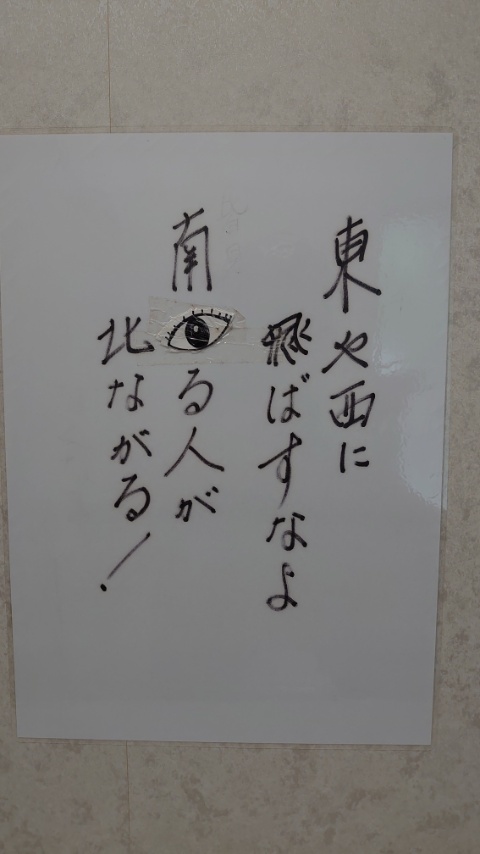 東や西に
飛ばすなよ
南る人が
北ながる!